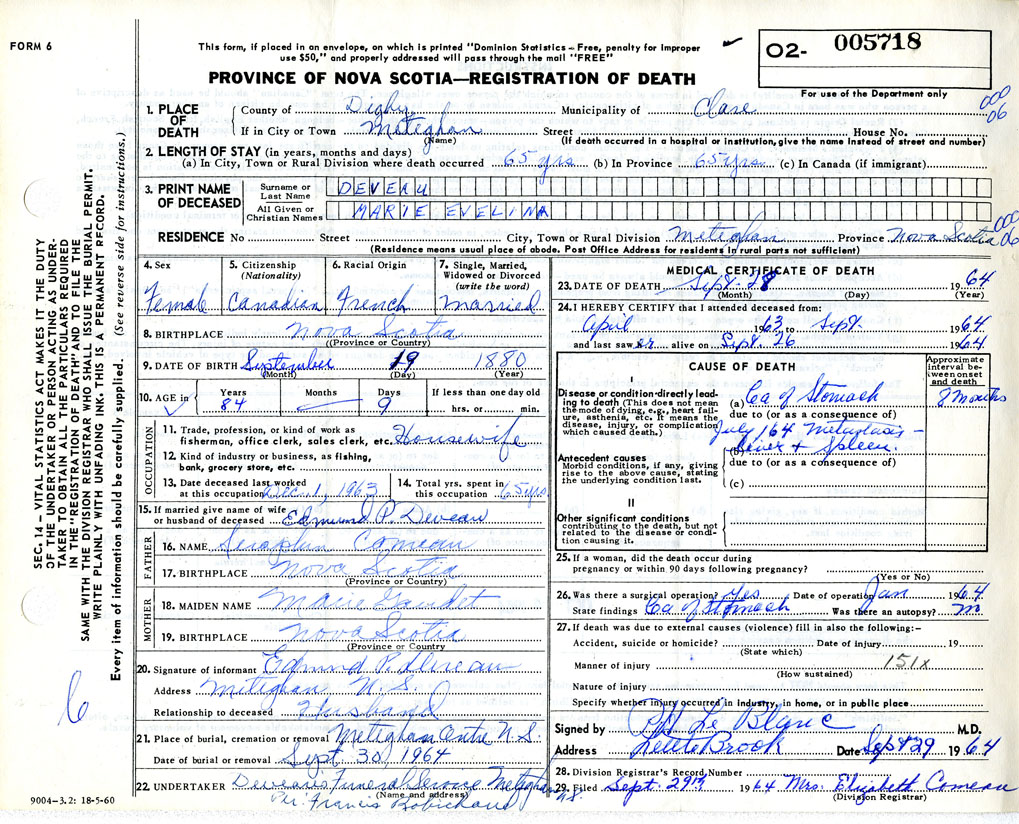 FORM 6
This form, if placed in an envelope, on which is printed "Dominion Statistics – Free, penalty for improper
use $50," and properly addressed will pass through the mail "FREE"
02- 005718
For use of the Department only
PROVINCE OF NOVA SCOTIA—REGISTRATION OF DEATH
000
06
1. PLACE OF DEATH
County of Digby Municipality of Clare
If in City or Town Meteghan Street House No.
(Name) (If death occurred in a hospital or institution, give the name instead of street and number)
2. LENGTH OF STAY (in years, months and days)
(a) In City, Town or Rural Division where death occurred 65 yrs (b) In Province 65 yrs. (c) In Canada (if immigrant)
3. PRINT NAME OF DECEASED
Surname or Last Name DEVEAU
All Given or Christian Names MARIE EVELINA
000
06
RESIDENCE No Street City, Town or Rural Division Meteghan Province Nova Scotia
(Residence means usual place of abode. Post Office Address for residents in rural parts not sufficient)
4. Sex Female
5. Citizenship (Nationality) Canadian
6. Racial Origin French
7. Single, Married, Widowed or Divorced (write the word) Married
8. BIRTHPLACE Nova Scotia
(Province or Country)
9. DATE OF BIRTH September 19 1880
(Month) (Day) (Year)
10. AGE in Years 84 Months — Days 9 If less than one day old hrs. or min.
OCCUPATION
11. Trade, profession, or kind of work as
fisherman, office clerk, sales clerk, etc. Housewife
12. Kind of industry or business, as fishing,
bank, grocery store, etc.
13. Date deceased last worked at this occupation Dec. 1, 1963
14. Total yrs. spent in this occupation 65 yrs
15. If married give name of wife
or husband of deceased Edmund P. Deveau
FATHER
16. NAME Seraphin Comeau
17. BIRTHPLACE Nova Scotia
(Province or Country)
MOTHER
18. MAIDEN NAME Marie Gaudet
19. BIRTHPLACE Nova Scotia
(Province or Country)
20. Signature of informant Edmund P. Deveau
Address Meteghan N.S.
Relationship to deceased Husband
21. Place of burial, cremation or removal Meteghan Centre N.S
Date of burial or removal Sept 30, 1964
22. UNDERTAKER Deveau's Funeral Service Meteghan N.S.
(Name and address)
Per. Francis Robichaud
MEDICAL CERTIFICATE OF DEATH
23. DATE OF DEATH Sept. 28 1964
(Month) (Day) (Year)
24. I HEREBY CERTIFY that I attended deceased from:
April 1963 to Sept. 1964
and last saw her alive on Sept. 26 1964
CAUSE OF DEATH
Approximate interval between onset and death
I
Disease or condition directly leading to death (This does not mean the mode of dying, e.g., heart failure, asthenia, etc. It means the disease, injury, or complication which caused death.)
(a) Ca of Stomach 8 Months
due to (or as a consequence of)
July /64 Metastasis –
(b) Liver + Spleen.
due to (or as a consequence of)
(c)
Antecedent causes
Morbid conditions, if any, giving rise to the above cause, stating the underlying condition last.
II
Other significant conditions
contributing to the death, but not related to the disease or condition causing it.
25. If a woman, did the death occur during
pregnancy or within 90 days following pregnancy?
(Yes or No)
26. Was there a surgical operation? Yes Date of operation Jan 1964
State findings Ca of Stomach Was there an autopsy? no
27. If death was due to external causes (violence) fill in also the following:-
Accident, suicide or homicide? Date of injury 19
(State which)
Manner of injury 151X
(How sustained)
Nature of injury
Specify whether injury occurred in industry, in home, or in public place
Signed by P.H. Le Blanc M.D.
Address Little Brook Date Sept 29 1964
28. Division Registrar's Record Number
29. Filed Sept. 29th 1964 Mrs. Elizabeth Comeau
(Division Registrar)
SEC. 14 – VITAL STATISTICS ACT MAKES IT THE DUTY
OF THE UNDERTAKER OR PERSON ACTING AS UNDER-
TAKER TO OBTAIN ALL THE PARTICULARS REQUIRED
IN THE "REGISTRATION OF DEATH" AND TO FILE THE
SAME WITH THE DIVISION REGISTRAR WHO SHALL ISSUE THE BURIAL PERMIT.
WRITE PLAINLY WITH UNFADING INK. THIS IS A PERMANENT RECORD.
Every item of information should be carefully supplied. (See reverse side for instructions.)
6
9004–3.2: 18-5-60